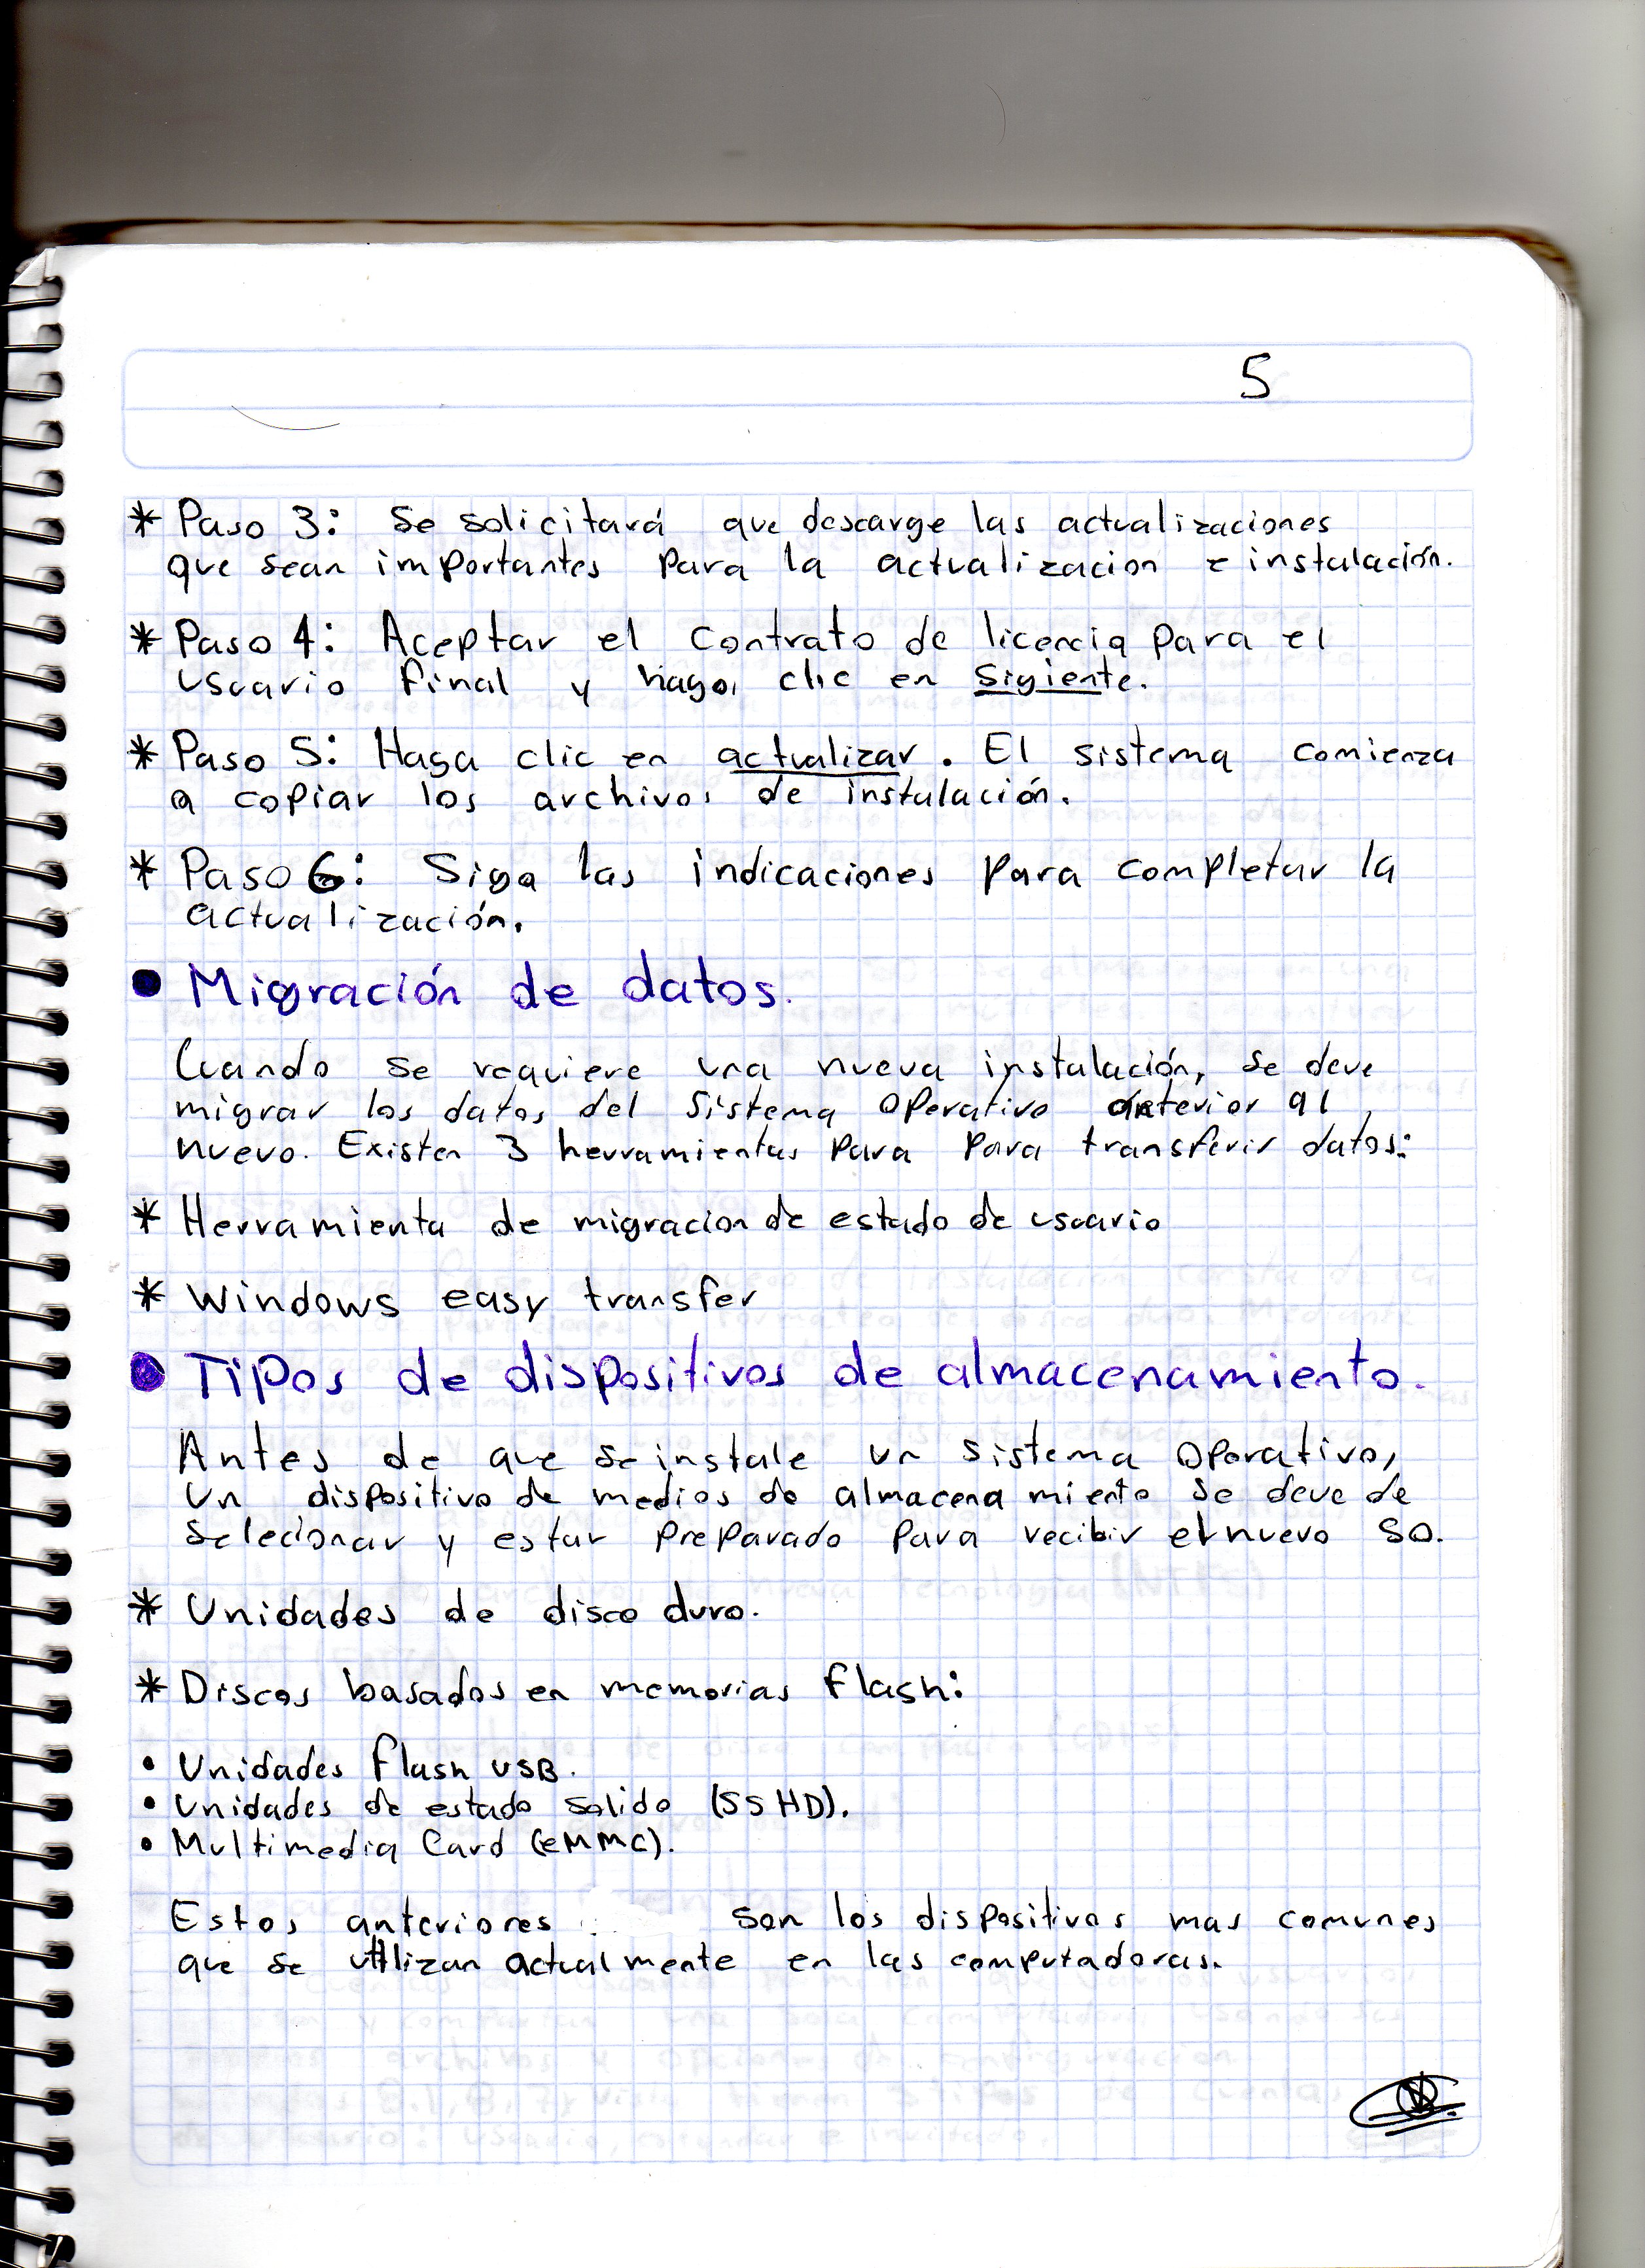 5
* Paso 3: Se solicitará que descarge las actualizaciones
que sean importantes para la actualizacion e instalación.
* Paso 4: Aceptar el contrato de licencia para el
usuario final y haga clic en sigiente.
* Paso 5: Haga clic en actualizar. El sistema comienza
a copiar los archivos de instalación.
* Paso 6: Siga las indicaciones para completar la
actualización.
● Migración de datos.
Cuando se requiere una nueva instalación, se deve
migrar los datos del sistema operativo anterior al
nuevo. Existen 3 herramientas para para transferir datos:
* Herramienta de migracion de estado de usuario
* Windows easy transfer
● Tipos de dispositivos de almacenamiento.
Antes de que se instale un sistema operativo,
un dispositivo de medios de almacenamiento se deve de
selecionar y estar preparado para recibir el nuevo SO.
* Unidades de disco duro.
* Discos basados en memorias flash:
• Unidades flash USB.
• Unidades de estado solido (SSHD).
• Multimedia Card (eMMC).
Estos anteriores son los dispositivos mas comunes
que se utilizan actualmente en las computadoras.